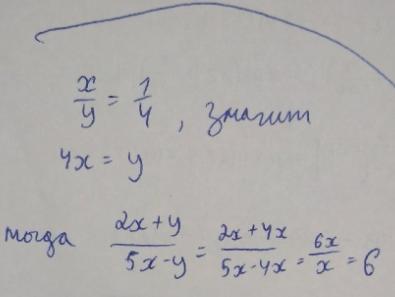 x/y = 1/4, значит
4x = y
тогда (2x+y)/(5x-y) = (2x+4x)/(5x-4x) = 6x/x = 6